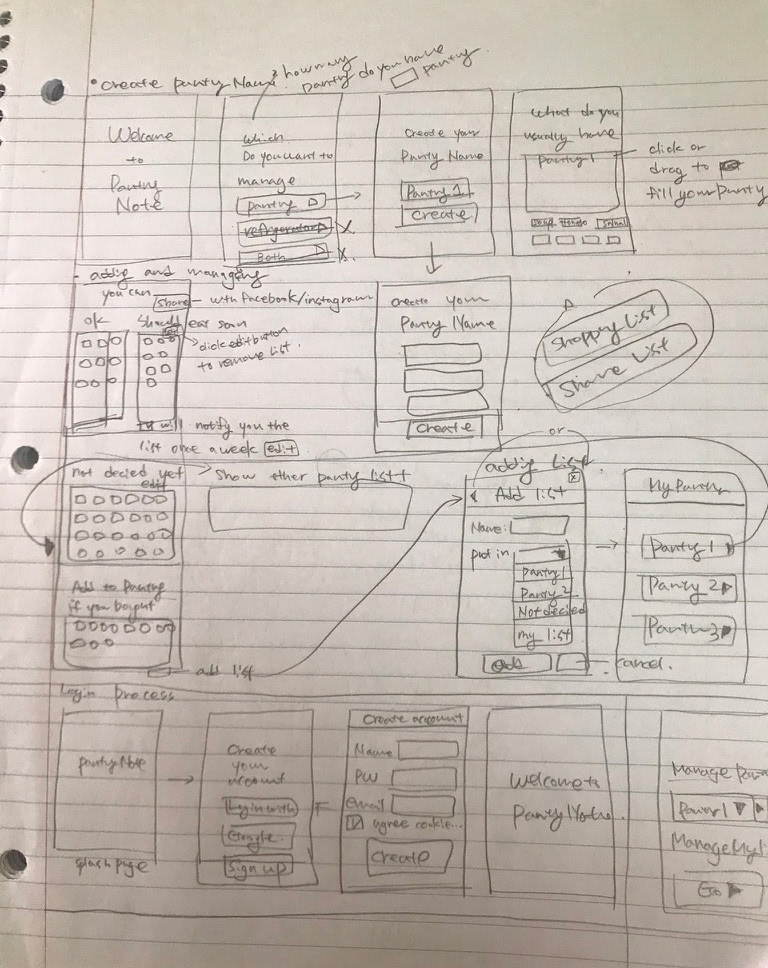 • Create pantry Name
how many
pantry do you have
pantry
Welcome
to
Pantry
Note
Which
Do you want to
manage
pantry
refrigerator X
Both X.
Create your
Panty Name
Pantry 1
Create
What do you
usually have
pantry 1
click or
drag to
fill your panty
- addig and managing
you can
share - with Facebook/instagram
OK
Should eat soon
click edit button
to remove list.
notify you the
list once a week edit
Create your
Pantry Name
Create
Shopping List
Share List
not decied yet
edit
Show other panty list
Add to Pantry
if you bought
add list
or
addig List.
X
Add list
Name:
put in
pantry 1
Pantry 2
Not decied
my list
Add
cancel.
My Pantry
Pantry 1
Pantry 2
Pantry 3
Login process
pantry Note
splash page
Create
your
account
Login with
Google
Sign up
Create account
Name
PW
email
agree cookie...
Create
Welcome to
Panty Note.
Manage Pan
Manage My li
Go